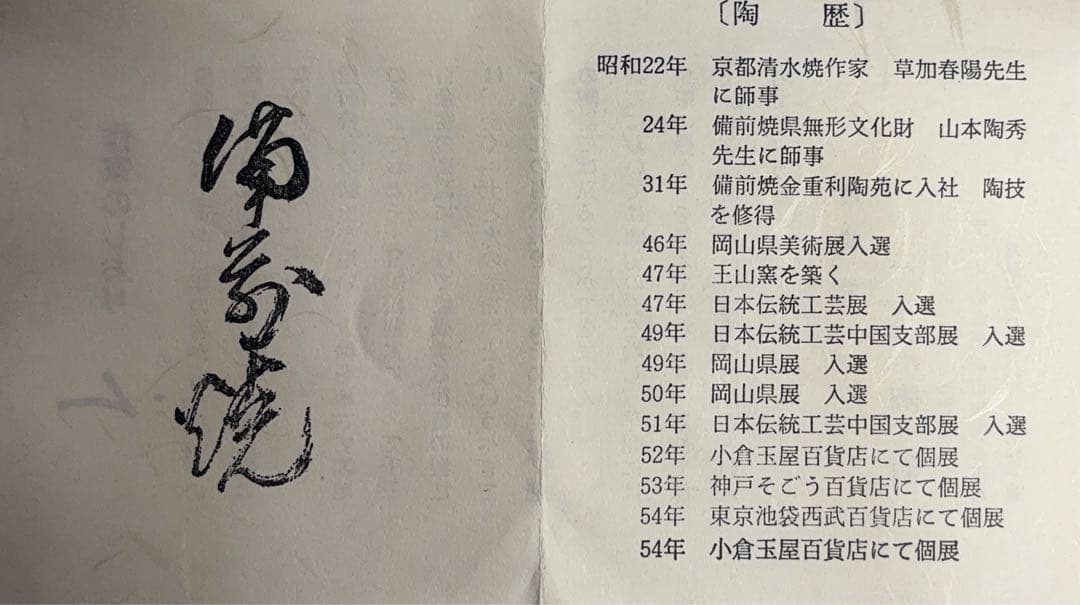 備前焼
〔陶 歴〕
昭和22年 京都清水焼作家 草加春陽先生
に師事
24年 備前焼県無形文化財 山本陶秀
先生に師事
31年 備前焼金重利陶苑に入社 陶技
を修得
46年 岡山県美術展入選
47年 王山窯を築く
47年 日本伝統工芸展 入選
49年 日本伝統工芸中国支部展 入選
49年 岡山県展 入選
50年 岡山県展 入選
51年 日本伝統工芸中国支部展 入選
52年 小倉玉屋百貨店にて個展
53年 神戸そごう百貨店にて個展
54年 東京池袋西武百貨店にて個展
54年 小倉玉屋百貨店にて個展